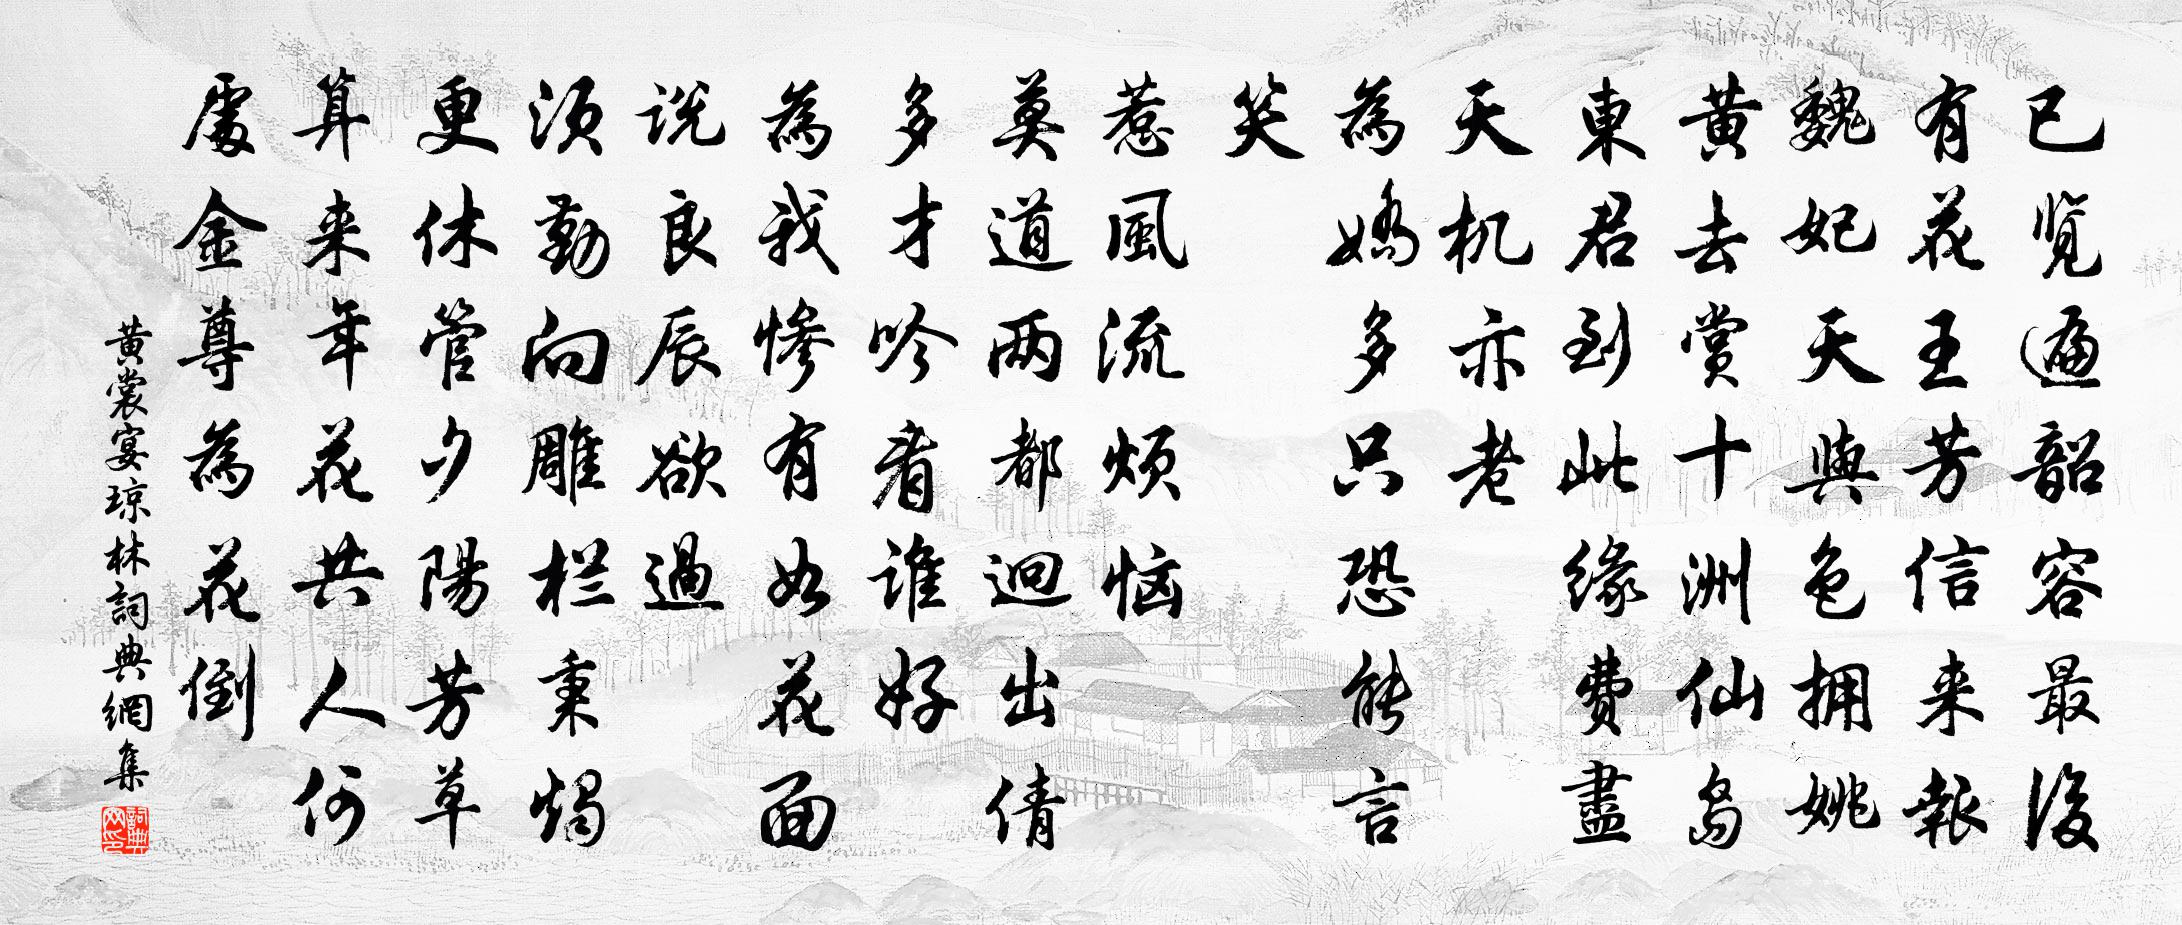 已览遍韶容最後
有花王芳信来報
魏妃天與色拥姚
黄去赏十洲仙岛
東君到此缘費盡
天机亦老
為嬌多只恐能言
笑
惹風流烦恼
莫道两都迥出倩
多才吟看谁好
為我惨有如花面
说良辰欲過
须勤向雕栏秉烛
更休管夕陽芳草
算来年花共人何
處金尊為花倒
黄裳宴琼林詞典網集
詞典网印